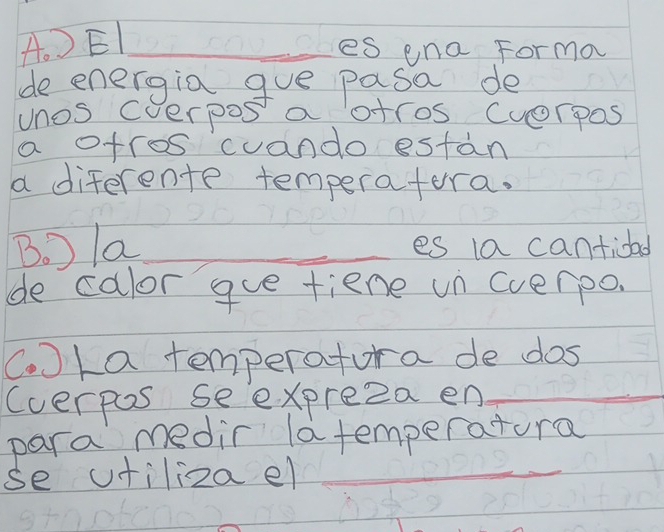 A.) El __________ es una Forma
de energia que pasa de
unos cuerpos a otros cuerpos
a otros cuando están
a diferente temperatura.
B.) la __________ es la cantidad
de calor que tiene un cuerpo.
C.) La temperatura de dos
cuerpos se expreza en __________
para medir la temperatura
se utiliza el __________